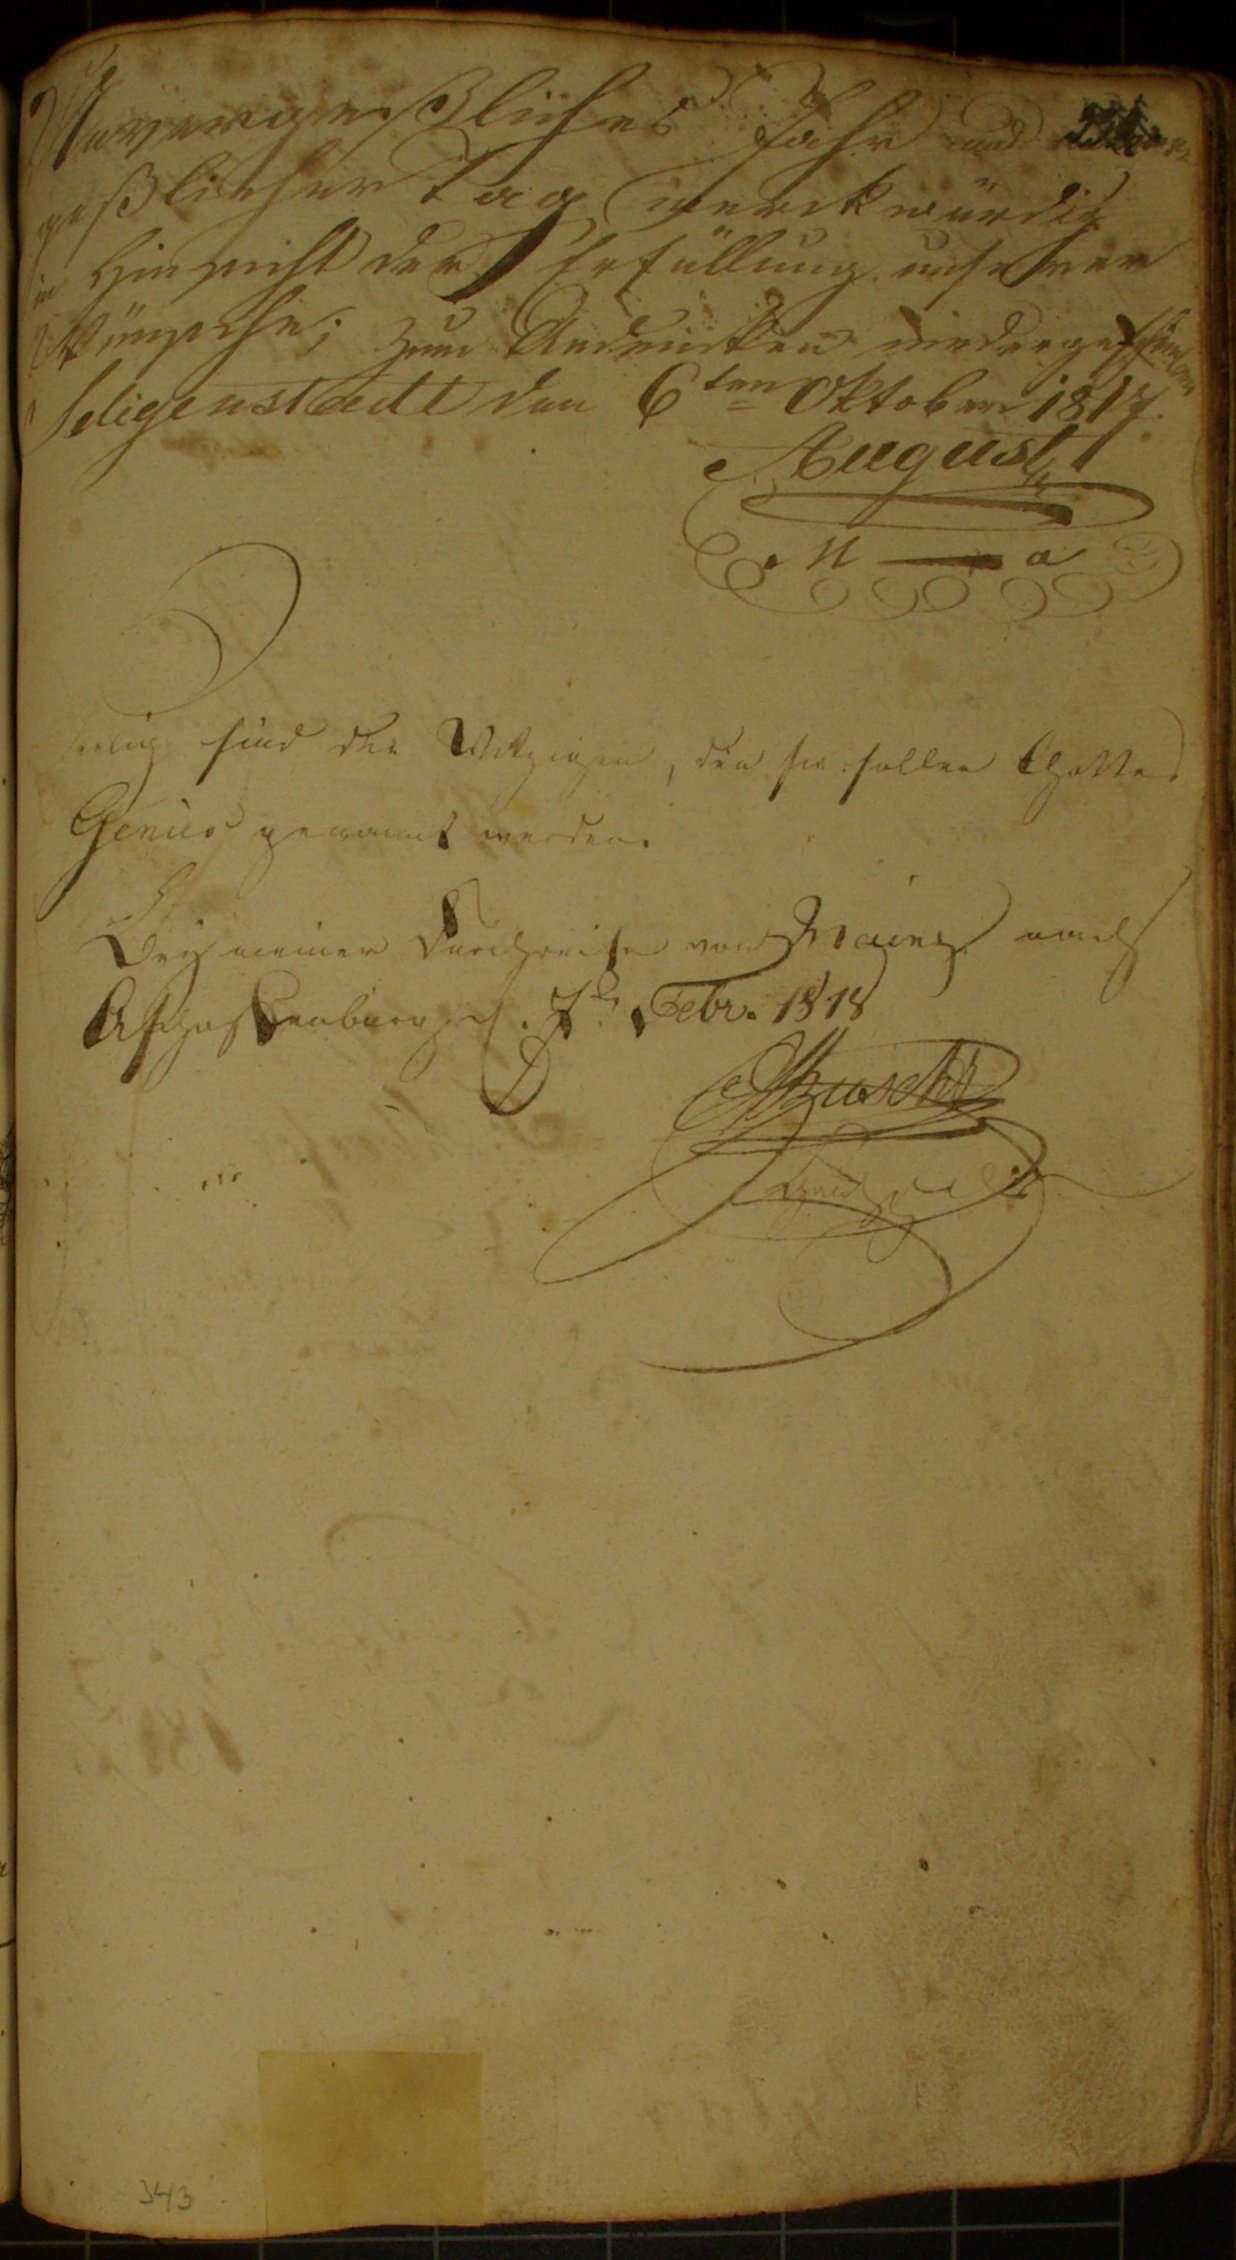 Unvergeßliches Jahr und
geßlicher Tag merckwürdig
in Hinsicht der Erfüllung unserer
Wünsche; zum Andencken niedergeschrieben
Seligenstadt den 6ten Oktober 1817.
August
M — a
seelig sind die Witzigen, den sie sollen Gottes
Genies genannt werden.
Bey meiner Durchreise von Mainz nach
Aschaffenburg d. 7t. Febr. 1818
343